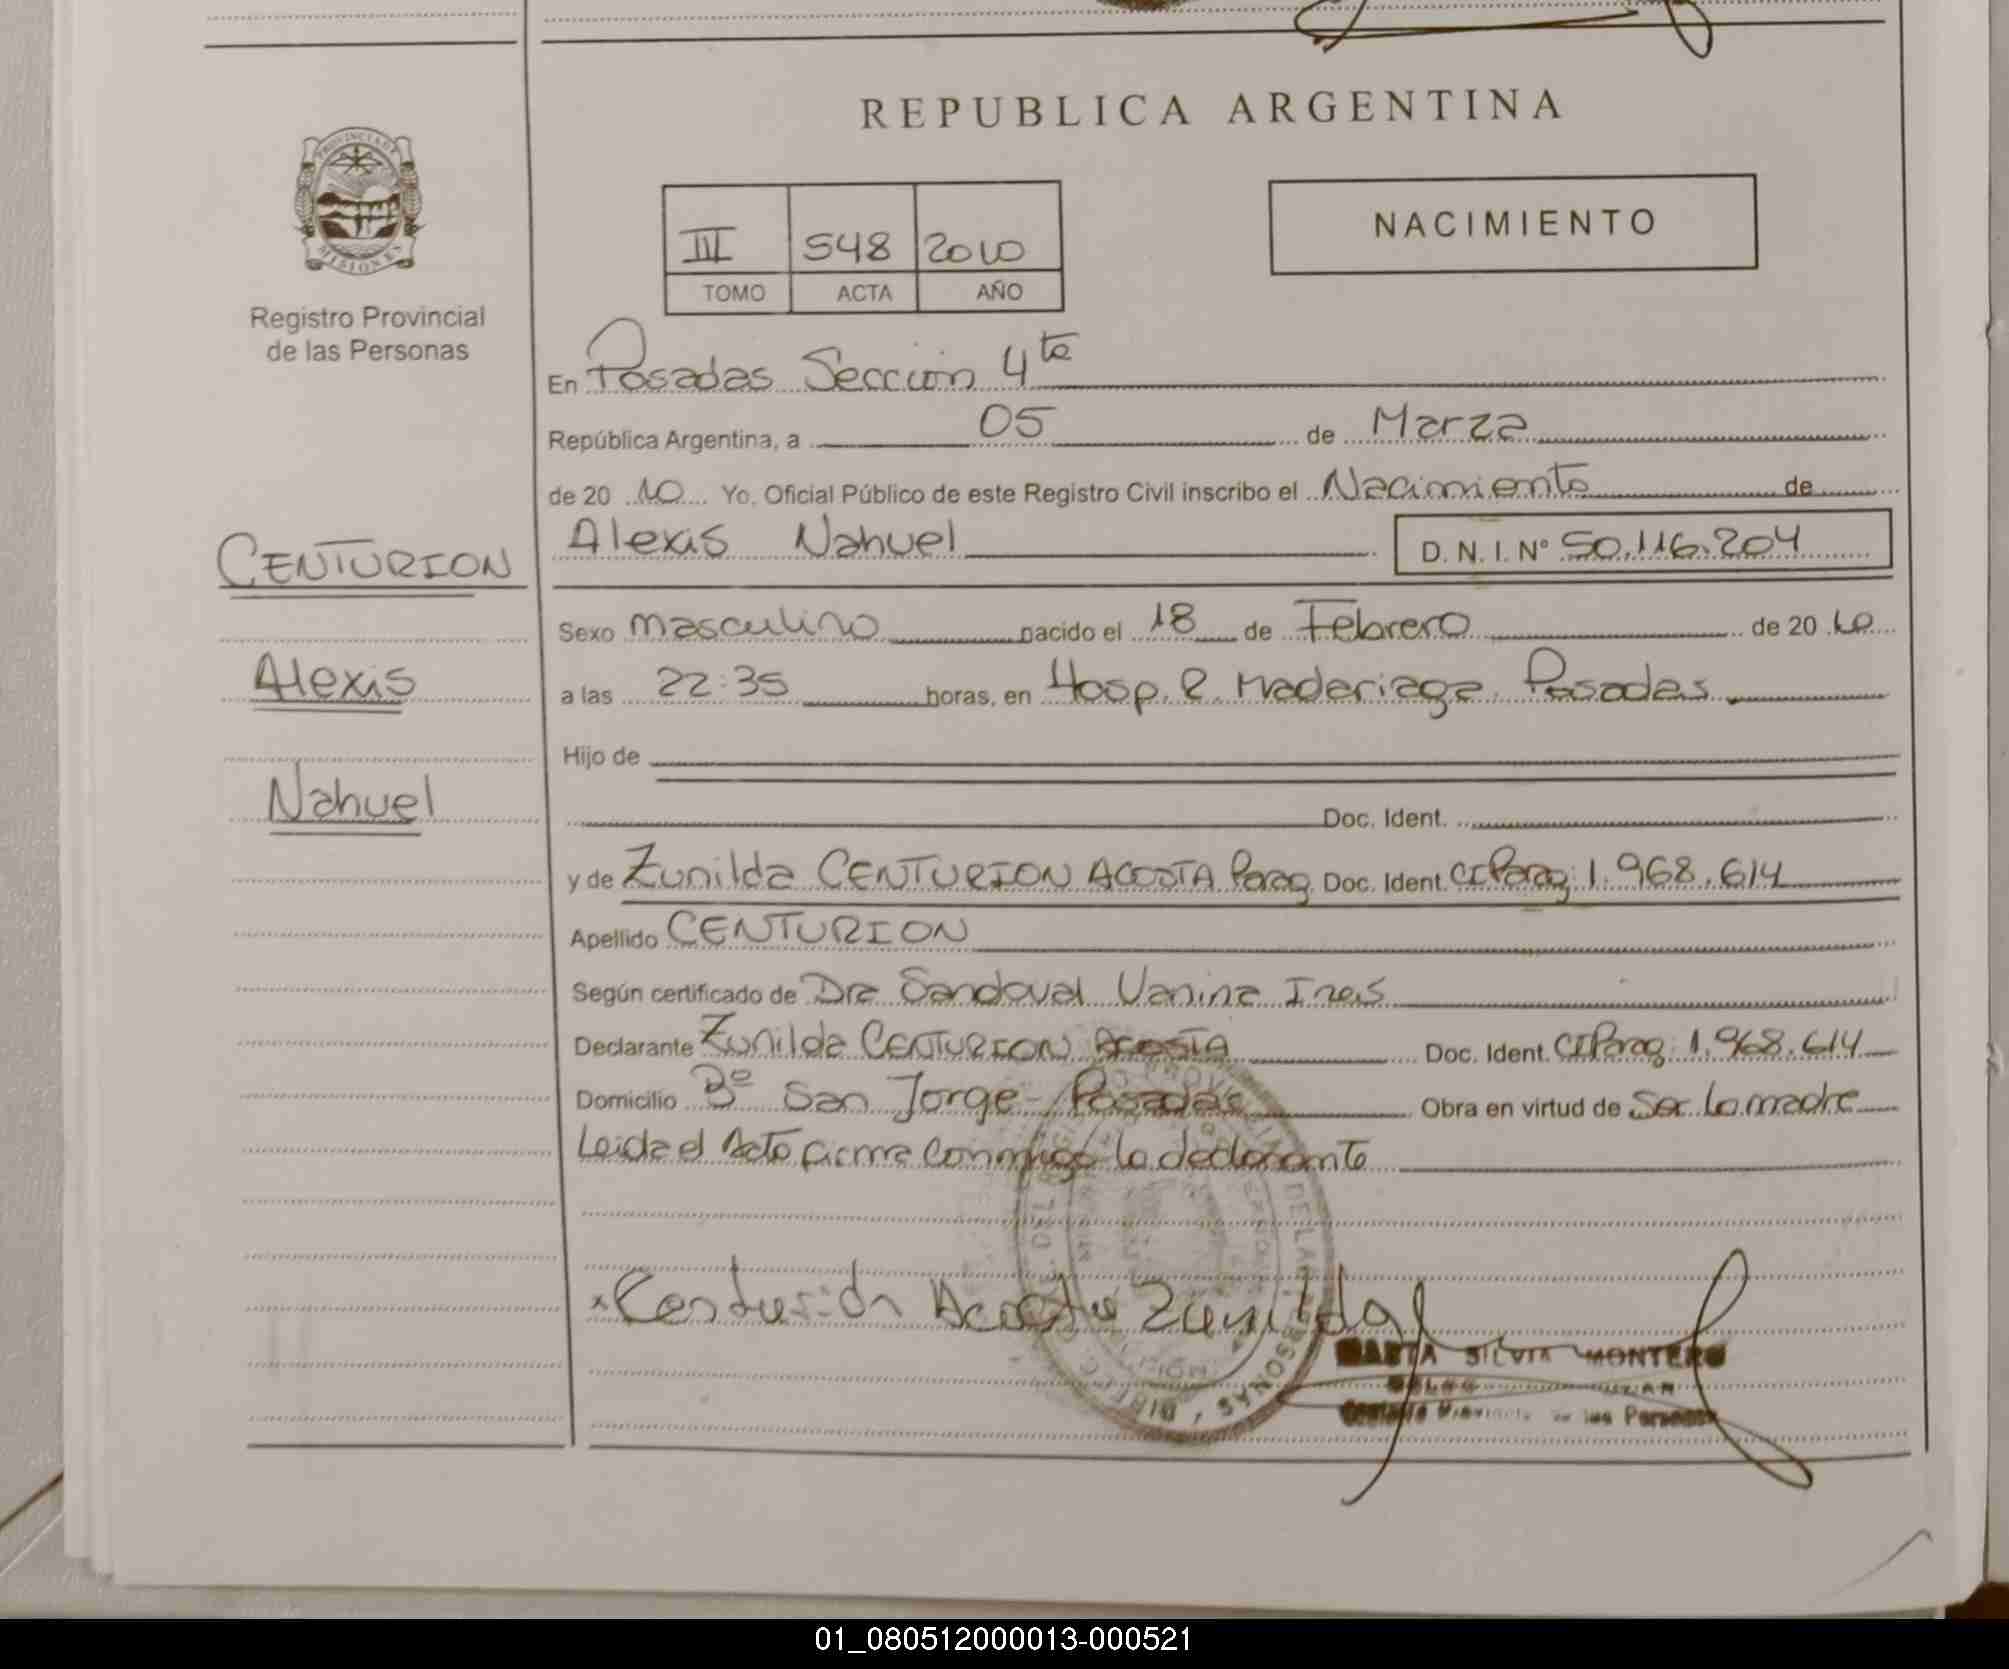 REPUBLICA ARGENTINA
PROVINCIA DE MISIONES
Registro Provincial
de las Personas
III 548 2010
TOMO ACTA AÑO
NACIMIENTO
En Posadas Sección 4ta
República Argentina, a 05 de Marzo
de 2010 Yo, Oficial Público de este Registro Civil inscribo el Nacimiento de
CENTURION
Alexis Nahuel D. N. I. Nº 50.116.204
Sexo masculino nacido el 18 de Febrero de 2010
Alexis
a las 22:35 horas, en Hosp. R. Madariaga Posadas
Hijo de
Nahuel
Doc. Ident.
y de Zunilda CENTURION ACOSTA Parag. Doc. Ident. CI Parag: 1.968.614
Apellido CENTURION
Según certificado de Dra Sandoval Vanina Ines
Declarante Zunilda CENTURION ACOSTA Doc. Ident. CI Parag: 1.968.614
Domicilio Bº San Jorge - Posadas Obra en virtud de Ser la madre
Leida el Acta firma conmigo la declarante
x Centurión Acosta Zunilda
MARTA SILVIA MONTERO
de las Personas
01_080512000013-000521